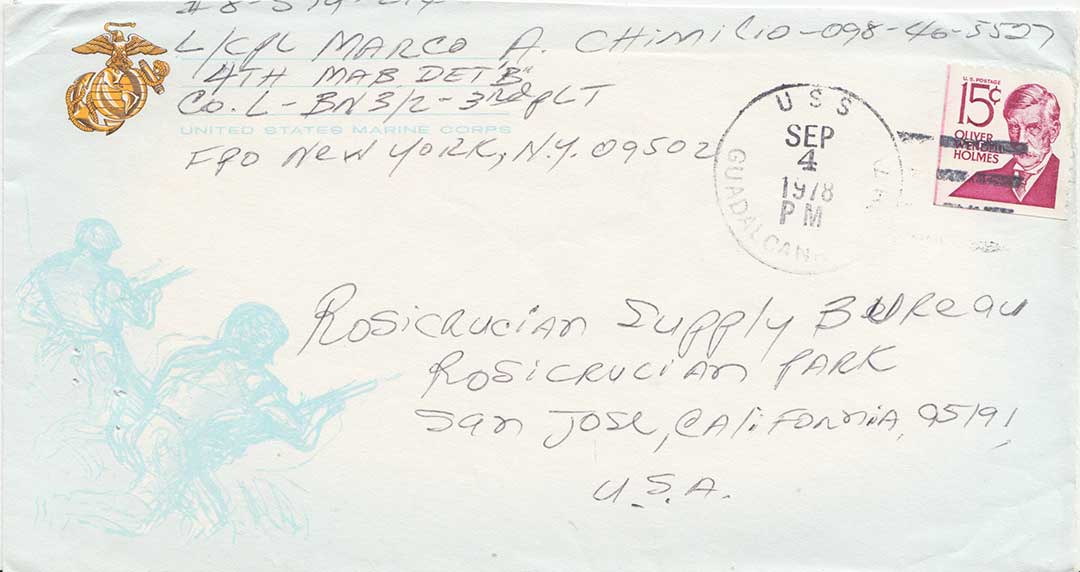 L/CPL MARCO A. CHIMILIO-098-46-5527
4TH MAB DET "B"
CO. L - BN 3/2 - 3rd PLT
UNITED STATES MARINE CORPS
FPO NEW YORK, N.Y. 09502
USS
SEP
4
1978
PM
U.S. POSTAGE
15¢
OLIVER
WENDELL
HOLMES
Rosicrucian Supply Bureau
Rosicrucian Park
San Jose, California, 95191
U.S.A.